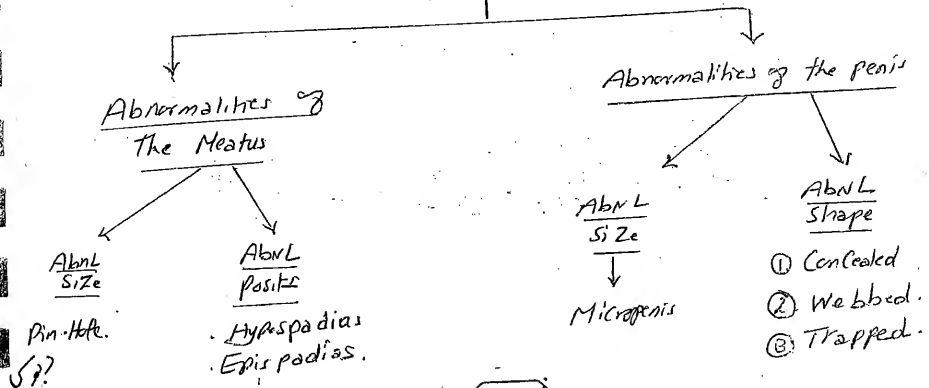 Abnormalities of
The Meatus
Abnl
Size
Pin-Hole.
AbNL
Posit
. Hypospadias
. Epispadias.
Abnormalities of the penis
AbNL
Size
Micropenis
AbNL
Shape
① Concealed
② Webbed.
③ Trapped.